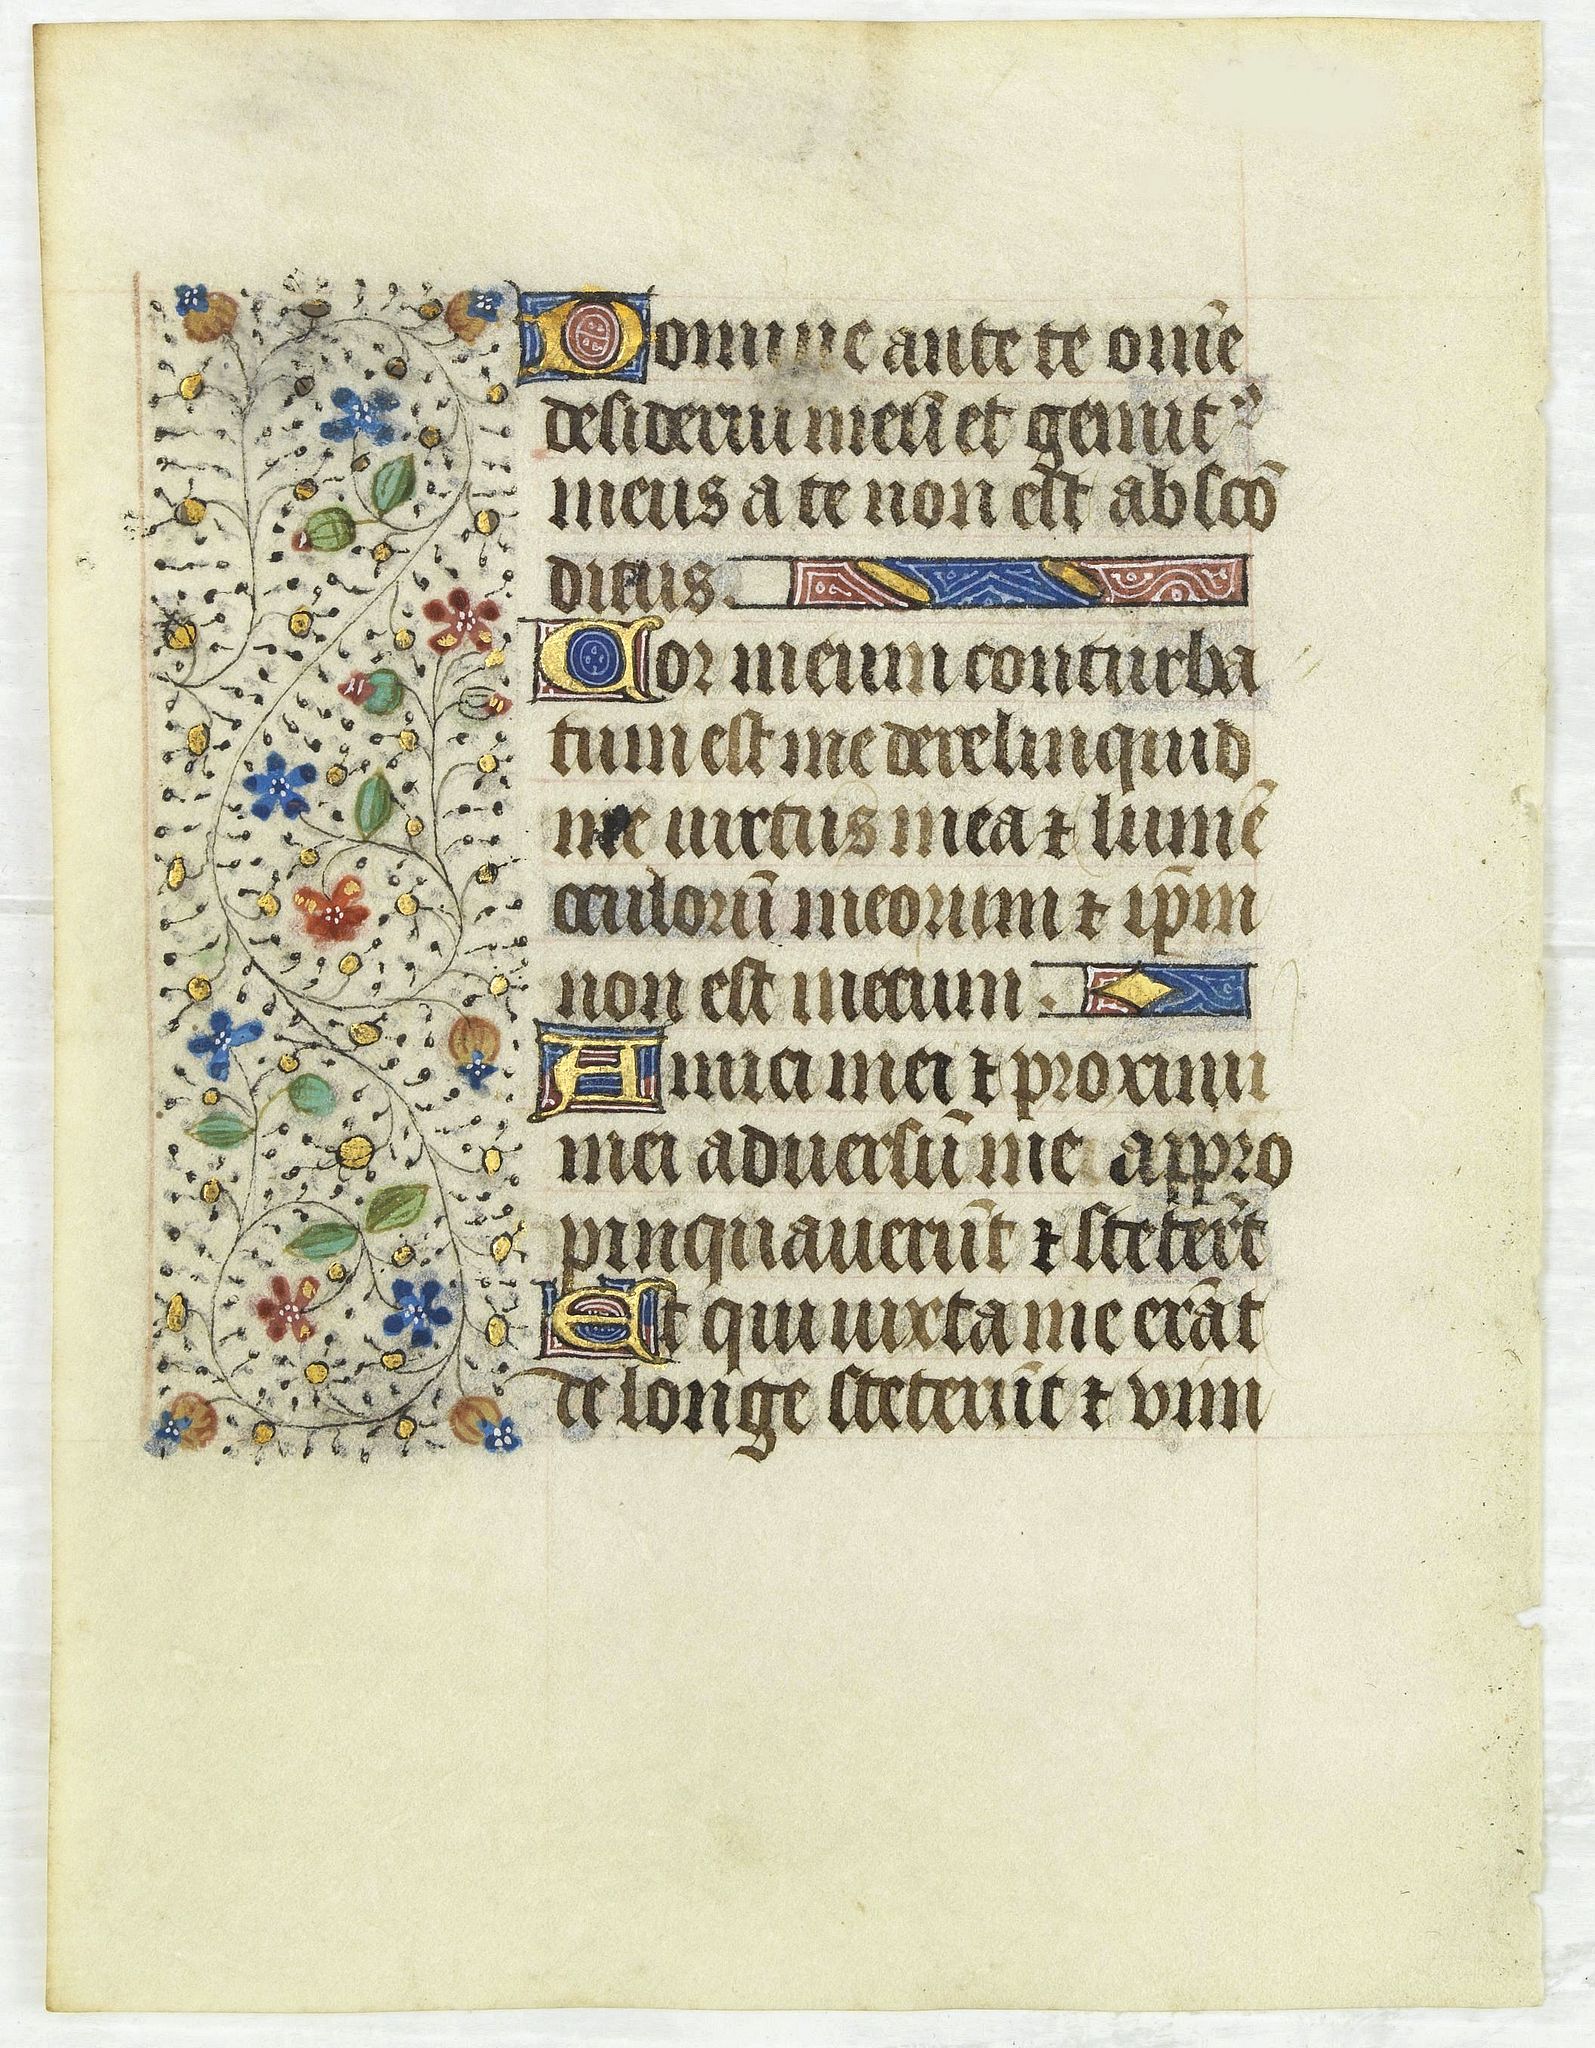 Domine ante te om̄e
desideriū meū et gemit⁹
meus a te non est absco᷑
ditus.
Cor meum conturba
tum est me derelinquid
me uirtus mea ⁊ lumē
oculorū meorum ⁊ ip̄m
non est mecum .
Amici mei ⁊ proximi
mei aduersū me appro
pinquauerūt ⁊ steter̄t
Et qui iuxta me erāt
de longe steterūt ⁊ vim